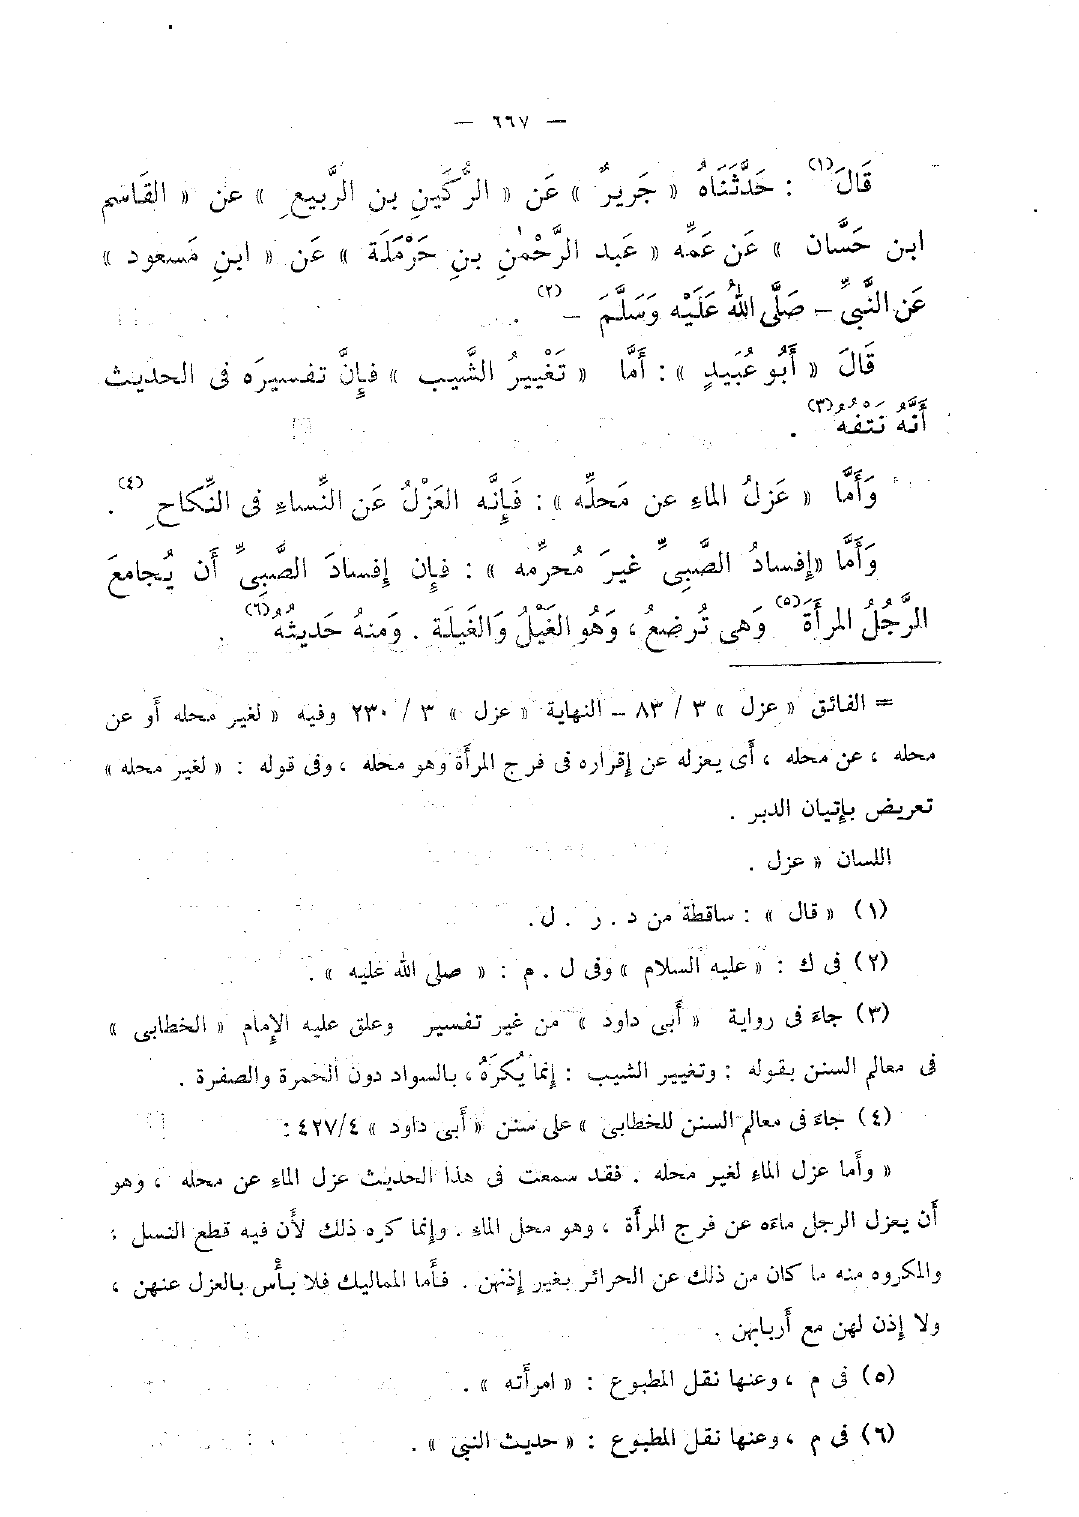 — ٦٦٧ —
قَالَ(١) : حَدَّثَنَاهُ « جَريرٌ » عَن « الرُّكَينِ بن الرَّبيعِ » عن « القَاسم
ابن حَسَّان » عَن عَمِّه « عَبد الرَّحْمٰنِ بنِ حَرْمَلَة » عَن « ابنِ مَسعود »
عَن النَّبىِّ – صَلَّى اللهُ عَلَيْه وَسَلَّمَ – (٢) .
قَالَ « أَبُو عُبَيدٍ » : أَمَّا « تَغْييرُ الشَّيب » فإِنَّ تفسيرَه فى الحديث
أَنَّهُ نَتْفُهُ(٣) .
وَأَمَّا « عَزلُ الماءِ عن مَحلِّه » : فَإِنَّه العَزْلُ عَن النِّساءِ فى النِّكاحِ(٤) .
وَأَمَّا «إِفسادُ الصَّبِىِّ غيرَ مُحرِّمه » : فإِن إِفسادَ الصَّبِىِّ أَن يُجامعَ
الرَّجُلُ المرأَةَ(٥) وَهى تُرضعُ ، وَهُو الغَيْلُ وَالغَيلَة . وَمنهُ حَديثُهُ(٦) .
= الفائق « عزل » ٣ / ٨٣ – النهاية « عزل » ٣ / ٢٣٠ وفيه « لغير محله أو عن
محله ، عن محله ، أى يعزله عن إقراره فى فرج المرأة وهو محله ، وفى قوله : « لغير محله »
تعريض بإتيان الدبر .
اللسان « عزل .
(١) « قال » : ساقطة من د . ر . ل .
(٢) فى ك : « عليه السلام » وفى ل . م : « صلى الله عليه » .
(٣) جاءَ فى رواية « أَبى داود » من غير تفسير وعلق عليه الإِمام « الخطابى »
فى معالم السنن بقوله : وتغيير الشيب : إنما يُكرَهُ ، بالسواد دون الحمرة والصفرة .
(٤) جاءَ فى معالم السنن للخطابى » على سنن « أَبى داود » ٤٢٧/٤ :
« وأَما عزل الماءِ لغير محله . فقد سمعت فى هذا الحديث عزل الماءِ عن محله ، وهو
أَن يعزل الرجل ماءَه عن فرج المرأَة ، وهو محل الماءِ . وإِنما كره ذلك لأَن فيه قطع النسل ،
والمكروه منه ما كان من ذلك عن الحرائر بغير إذنهن . فأَما المماليك فلا بأْس بالعزل عنهن ،
ولا إذن لهن مع أَربابهن .
(٥) فى م ، وعنها نقل المطبوع : « امرأَته » .
(٦) فى م ، وعنها نقل المطبوع : « حديث النبى » .